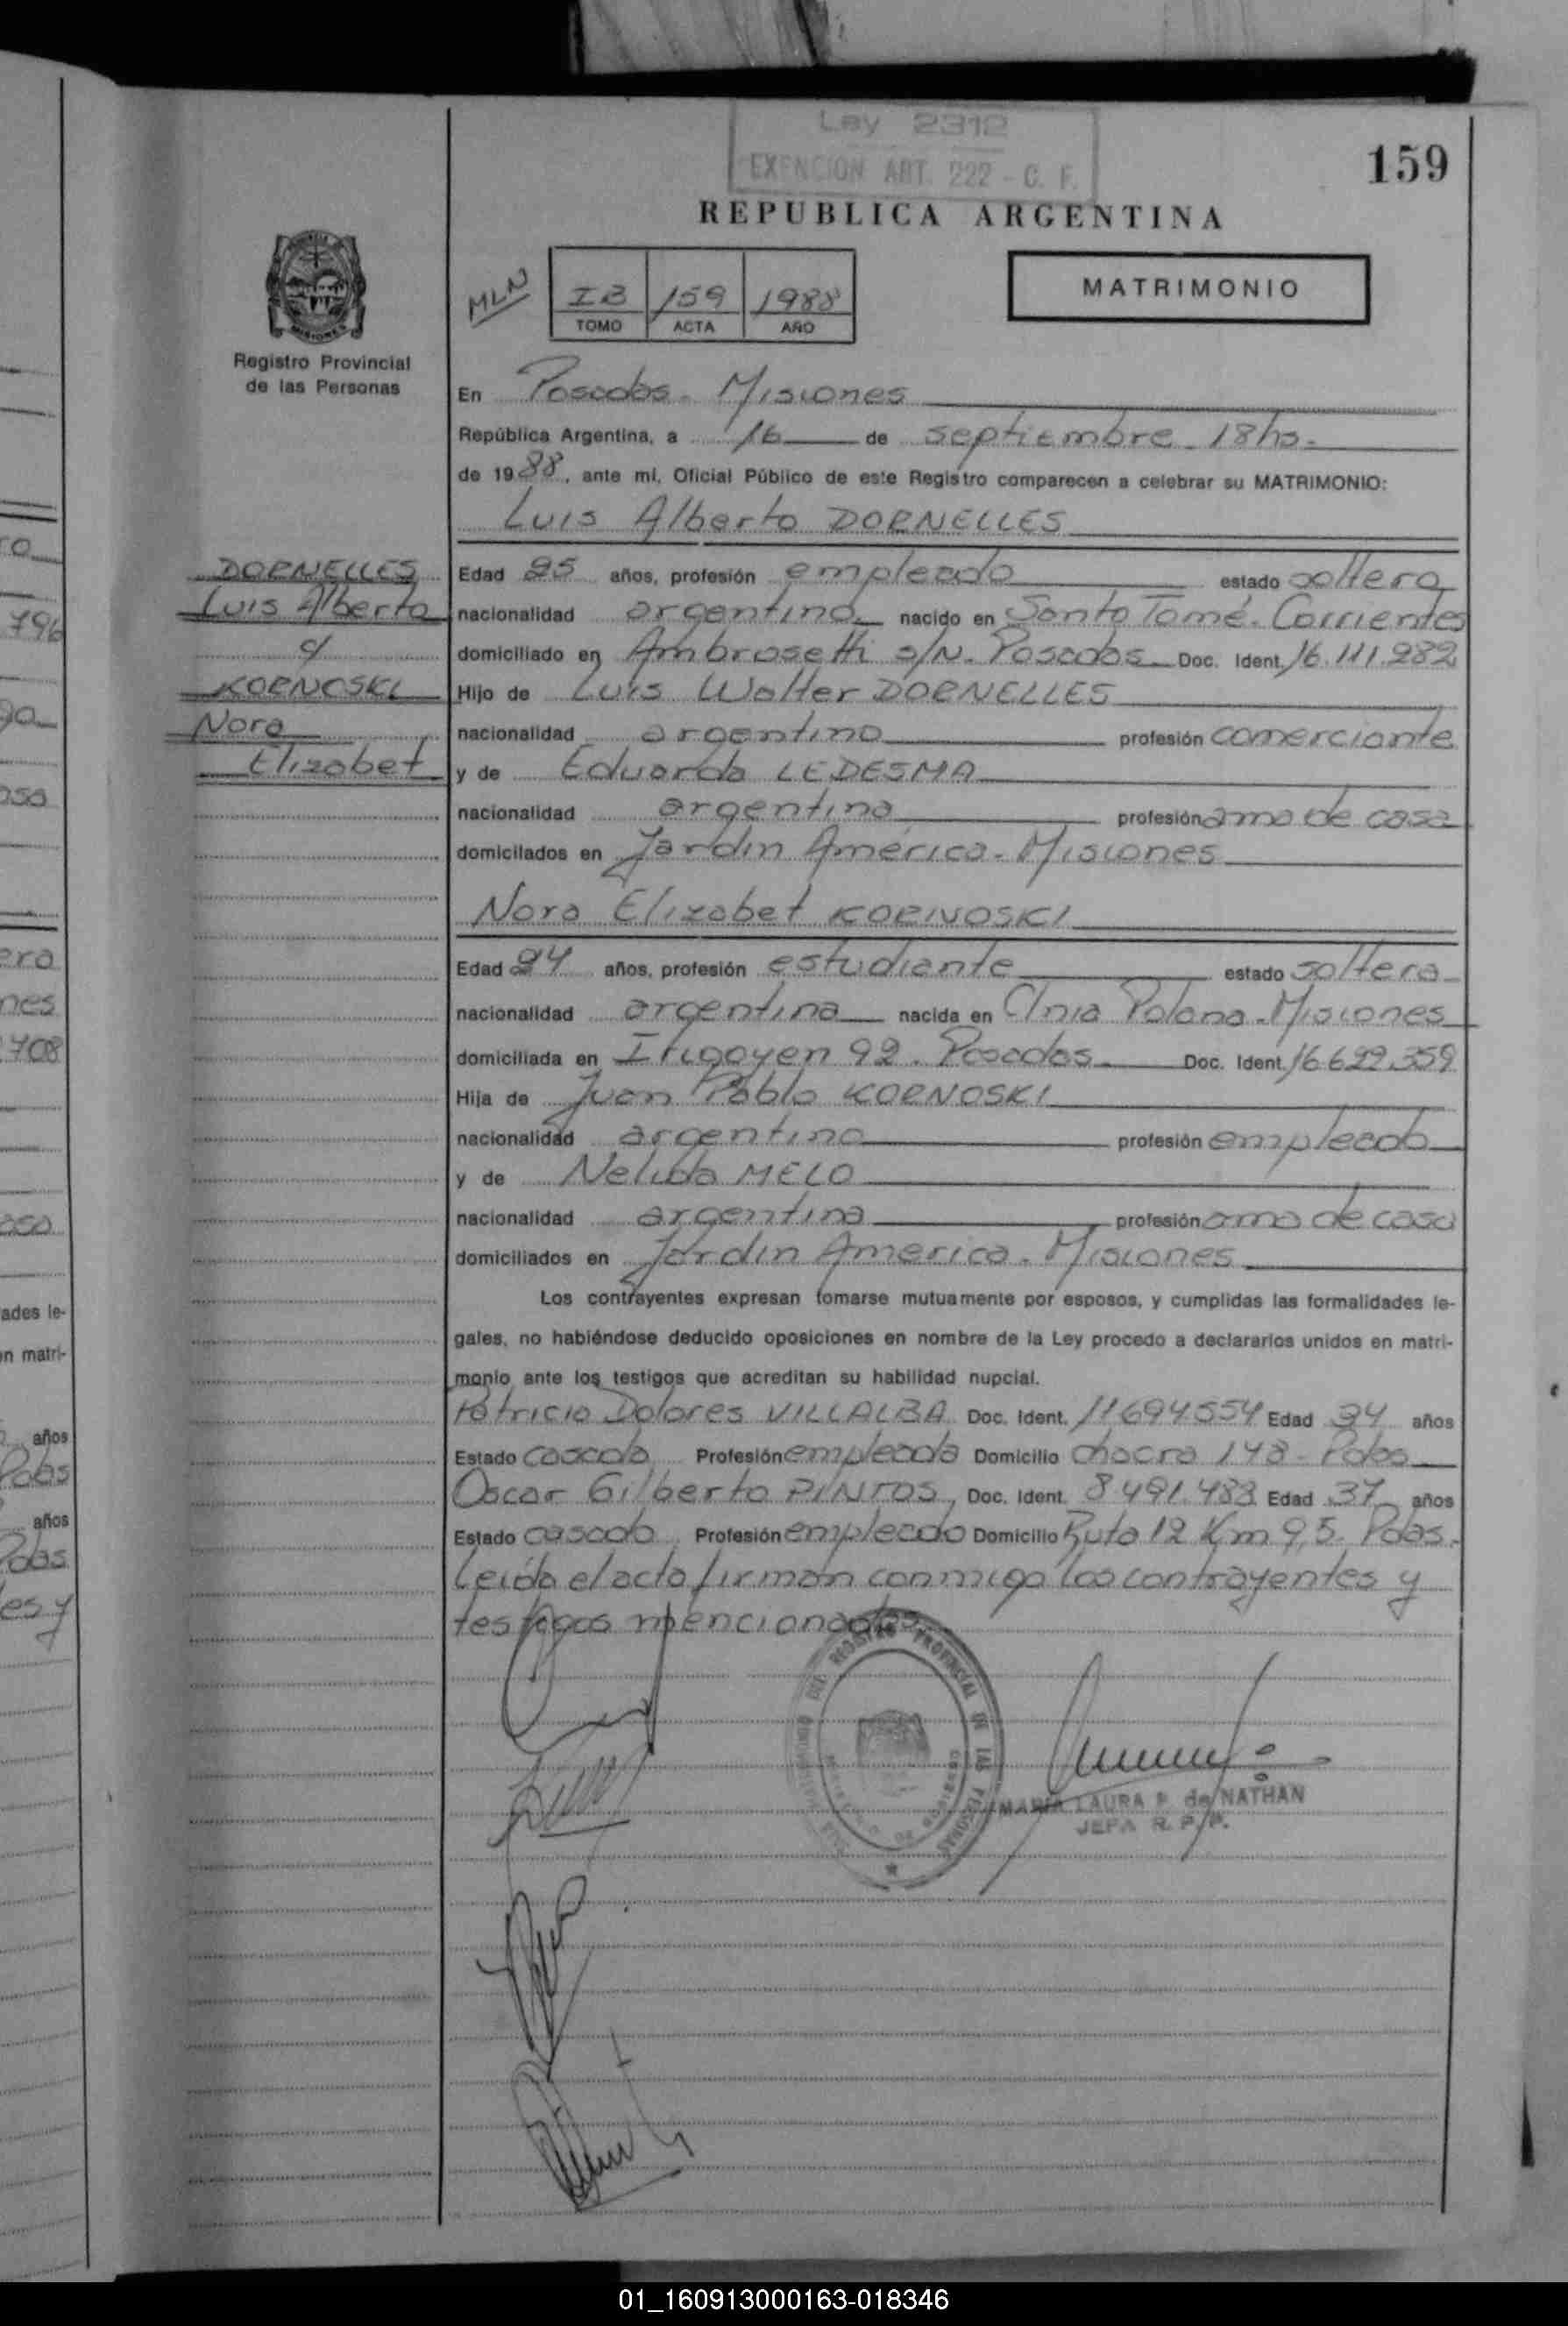 Ley 2312
EXENCION ART. 222 - C. F.
159
REPUBLICA ARGENTINA
MLN
IB 159 1988
TOMO ACTA AÑO
MATRIMONIO
Registro Provincial
de las Personas
En Posadas - Misiones
República Argentina, a 16 de septiembre - 18hs.
de 1988, ante mi, Oficial Público de este Registro comparecen a celebrar su MATRIMONIO:
Luis Alberto DORNELLES
DORNELLES
Luis Alberto
c/
KORNOSKI
Nora
Elizabet
Edad 25 años, profesión empleado estado soltero
nacionalidad argentino nacido en Santo Tomé - Corrientes
domiciliado en Ambrosetti s/N - Posadas Doc. Ident. 16.111.282
Hijo de Luis Walter DORNELLES
nacionalidad argentino profesión comerciante
y de Eduarda LEDESMA
nacionalidad argentina profesión ama de casa
domicilados en Jardín América - Misiones
Nora Elizabet KORNOSKI
Edad 24 años, profesión estudiante estado soltera
nacionalidad argentina nacida en Clnia Polana - Misiones
domiciliada en Irigoyen 92 - Posadas Doc. Ident. 16.629.359
Hija de Juan Pablo KORNOSKI
nacionalidad argentino profesión empleado
y de Nelida MELO
nacionalidad argentina profesión ama de casa
domiciliados en Jardín America - Misiones
Los contrayentes expresan tomarse mutuamente por esposos, y cumplidas las formalidades le-
gales, no habiéndose deducido oposiciones en nombre de la Ley procedo a declararlos unidos en matri-
monio ante los testigos que acreditan su habilidad nupcial.
Patricia Dolores VILLALBA Doc. Ident. 11694554 Edad 34 años
Estado casada Profesión empleada Domicilio chacra 148 - Pdas
Oscar Gilberto PINTOS, Doc. Ident. 8491.483 Edad 37 años
Estado casado Profesión empleado Domicilio Ruta 12 Km 9,5 - Pdas.
Leída el acta firman conmigo los contrayentes y
testigos mencionados
REGISTRO PROVINCIAL DE LAS PERSONAS
MARIA LAURA P. de NATHAN
JEFA R. P. P.
ro
796
ga
osa
era
nes
708
asa
ades le-
en matri-
años
Pdas
años
Pdas
es y
01_160913000163-018346